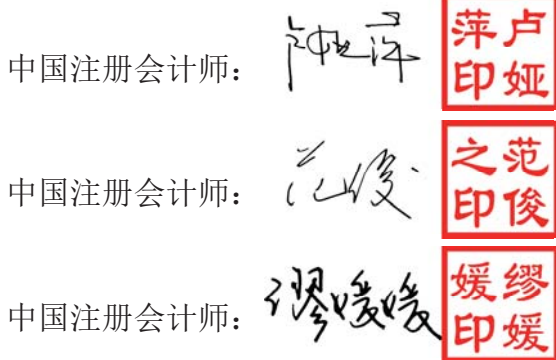 中国注册会计师： 卢娅萍 卢娅萍印
中国注册会计师： 范俊 范俊之印
中国注册会计师： 缪媛媛 缪媛媛印